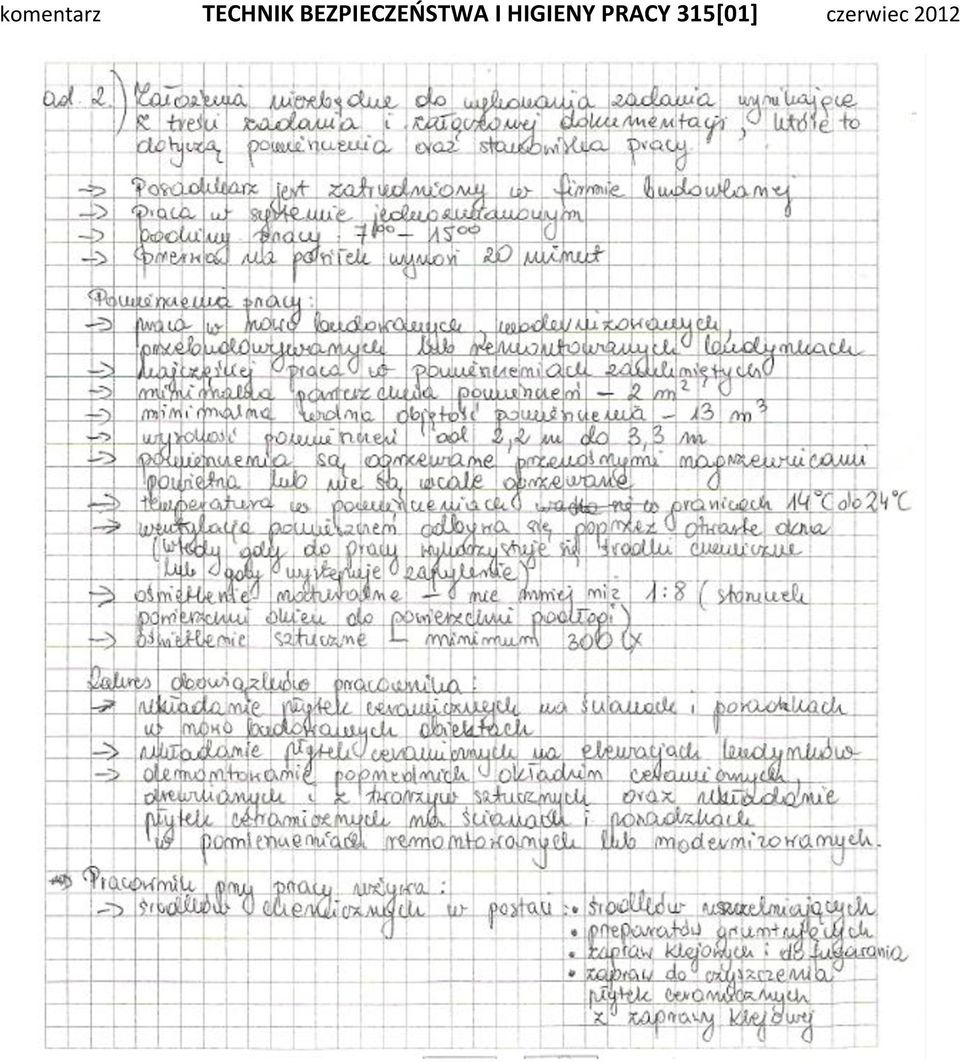 komentarz TECHNIK BEZPIECZEŃSTWA I HIGIENY PRACY 315[01] czerwiec 2012
ad. 2.) Założenia niezbędne do wykonania zadania wynikające
z treści zadania i załączkowej dokumentacji, które to
dotyczą pomieszczenia oraz stanowiska pracy.
-> Posadzkarz jest zatrudniony w firmie budowlanej
-> praca w systemie jednozmianowym
-> godziny pracy : 7⁰⁰ - 15⁰⁰
-> przerwa na posiłek wynosi 20 minut
Pomieszczenia pracy :
-> praca w nowo budowanych, modernizowanych,
przebudowywanych lub remontowanych budynkach
-> najczęściej praca w pomieszczeniach zamkniętych
-> minimalna powierzchnia pomieszczeń - 2 m²
-> minimalna wolna objętość pomieszczenia - 13 m³
-> wysokość pomieszczeń od 2,2 m do 3,3 m
-> pomieszczenia są ogrzewane przenośnymi nagrzewnicami
powietrza lub nie są wcale ogrzewane
-> temperatura w pomieszczeniach w granicach 14°C do 24°C
-> wentylacja pomieszczeń odbywa się poprzez otwarte okna
(wtedy gdy do pracy wykorzystuje się środki chemiczne
lub gdy występuje zapylenie)
-> oświetlenie naturalne - nie mniej niż 1:8 (stosunek
powierzchni okien do powierzchni podłogi)
-> oświetlenie sztuczne - minimum 300 lx
Zakres obowiązków pracownika :
-> układanie płytek ceramicznych na ścianach i posadzkach
w nowo budowanych obiektach
-> układanie płytek ceramicznych na elewacjach budynków
-> demontowanie poprzednich okładzin ceramicznych,
drewnianych i z tworzyw sztucznych oraz układanie
płytek ceramicznych na ścianach i posadzkach
w pomieszczeniach remontowanych lub modernizowanych.
-> Pracownik przy pracy używa :
-> środków chemicznych w postaci : • środków uszczelniających
• preparatów gruntujących
• zapraw klejowych i do fugowania
• zapraw do czyszczenia
płytek ceramicznych
z zaprawy klejowej